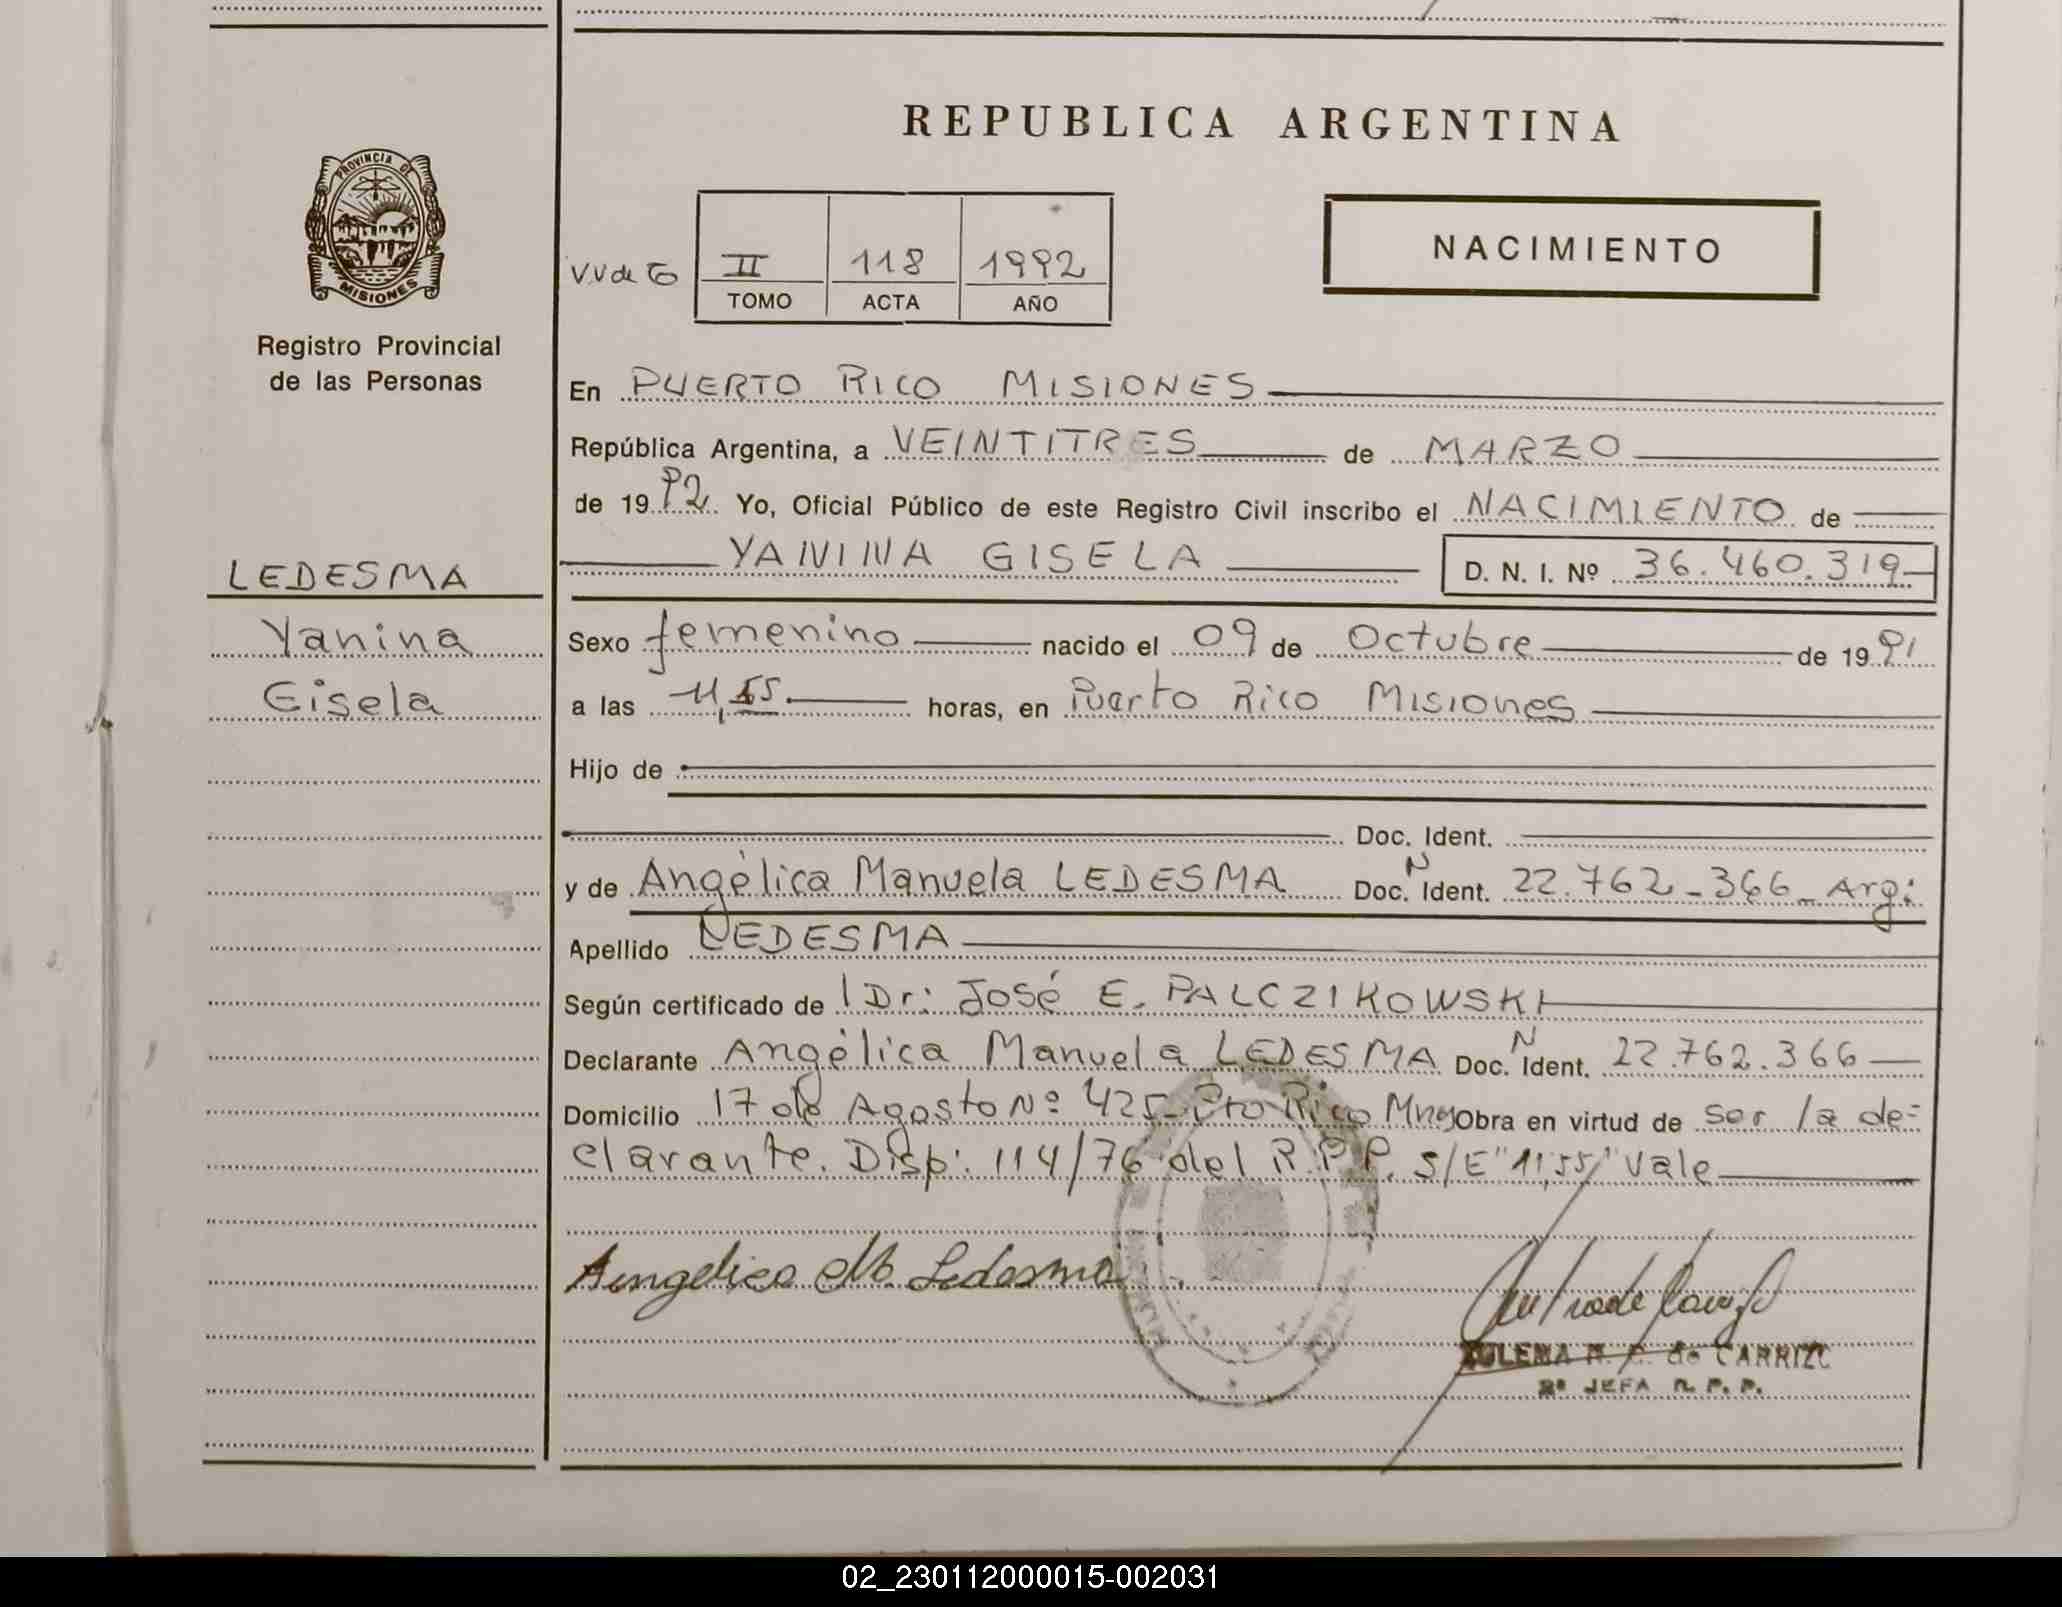 REPUBLICA ARGENTINA
PROVINCIA DE
MISIONES
Registro Provincial
de las Personas
V.V de
II 118 1992
TOMO ACTA AÑO
NACIMIENTO
En PUERTO RICO MISIONES
República Argentina, a VEINTITRES de MARZO
de 1992 Yo, Oficial Público de este Registro Civil inscribo el NACIMIENTO de
YANINA GISELA D. N. I. Nº 36.460.319
LEDESMA
Yanina
Gisela
Sexo femenino nacido el 09 de Octubre de 1991
a las 11,55 horas, en Puerto Rico Misiones
Hijo de
Doc. Ident.
y de Angélica Manuela LEDESMA Doc. N Ident. 22.762-366 Arg:
Apellido LEDESMA
Según certificado de l Dr: José E. PALCZIKOWSKI
Declarante Angélica Manuela LEDESMA Doc. N Ident. 22.762.366
Domicilio 17 de Agosto Nº 425 Pto Rico Mnes Obra en virtud de ser la de=
clarante. Disp: 114/76 del R.P.P. S/E "11,55" Vale
Angelica M. Ledesma
ZULEMA de CARRIZO
2ª JEFA R. P. P.
02_230112000015-002031